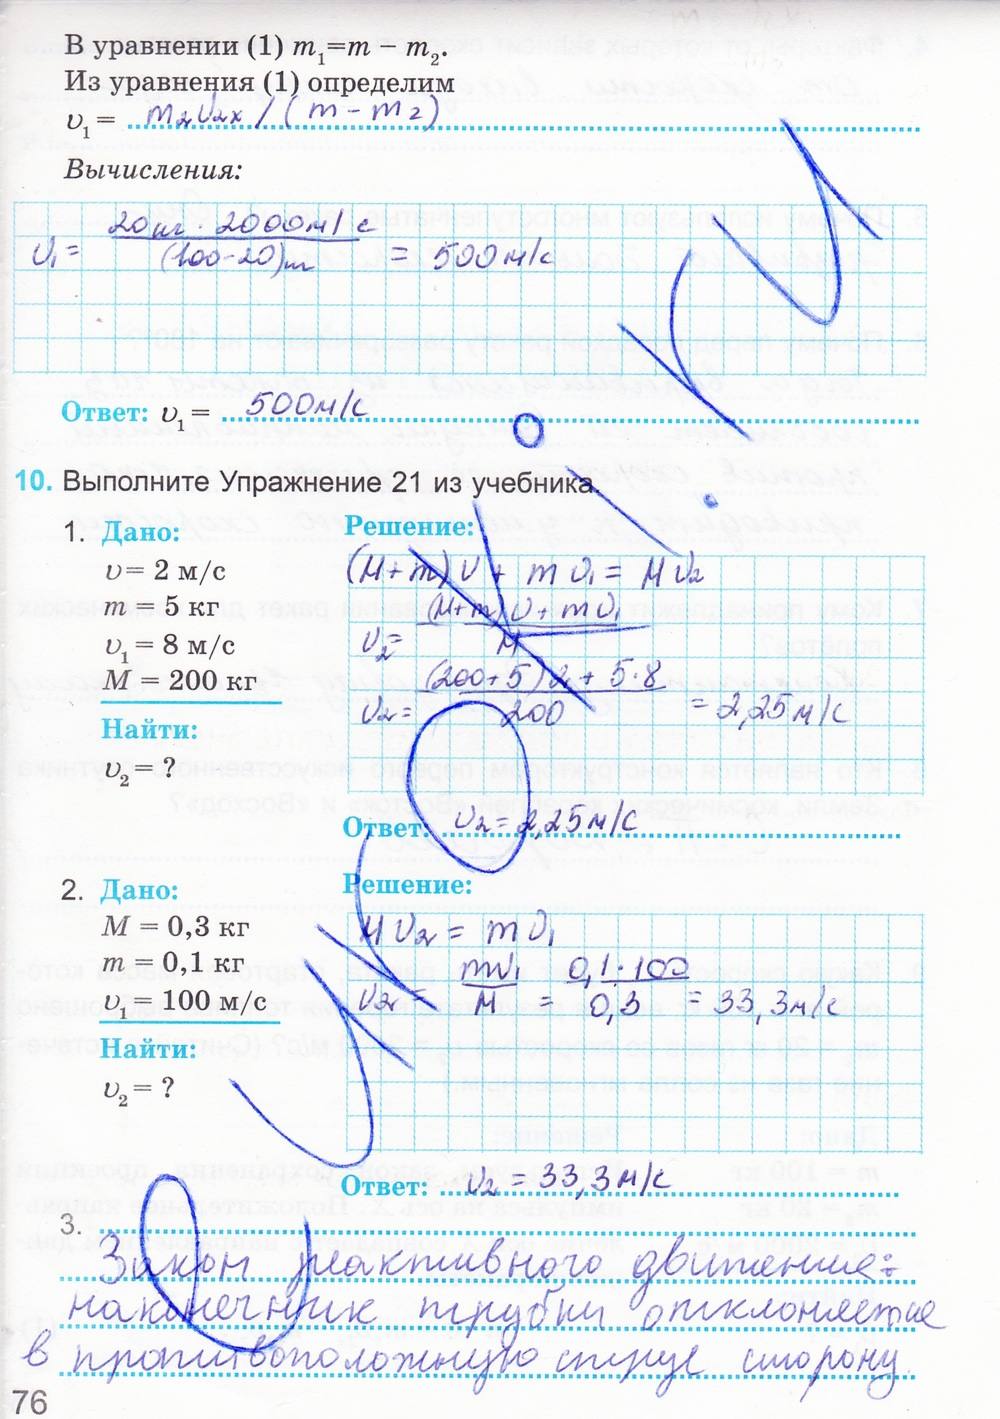 В уравнении (1) m₁=m   m₂.
Из уравнения (1) определим
υ₁ = m₂υ₂ₓ / (m - m₂)
Вычисления:
υ₁ = 20кг · 2000м/с / (100-20)кг = 500м/с
Ответ: υ₁ = 500м/с
10. Выполните Упражнение 21 из учебника.
1. Дано:
υ = 2 м/с
m = 5 кг
υ₁ = 8 м/с
M = 200 кг
Найти:
υ₂ = ?
Решение:
(M+m)υ + mυ₁ = Mυ₂
υ₂ = (M+m)υ + mυ₁ / M
υ₂ = (200+5)2 + 5·8 / 200 = 2,25м/с
Ответ: υ₂ = 2,25м/с
2. Дано:
M = 0,3 кг
m = 0,1 кг
υ₁ = 100 м/с
Найти:
υ₂ = ?
Решение:
Mυ₂ = mυ₁
υ₂ = mυ₁ / M = 0,1·100 / 0,3 = 33,3м/с
Ответ: υ₂ = 33,3м/с
3.
Закон реактивного движения:
наконечник трубки отклоняется
в противоположную струе сторону.
76